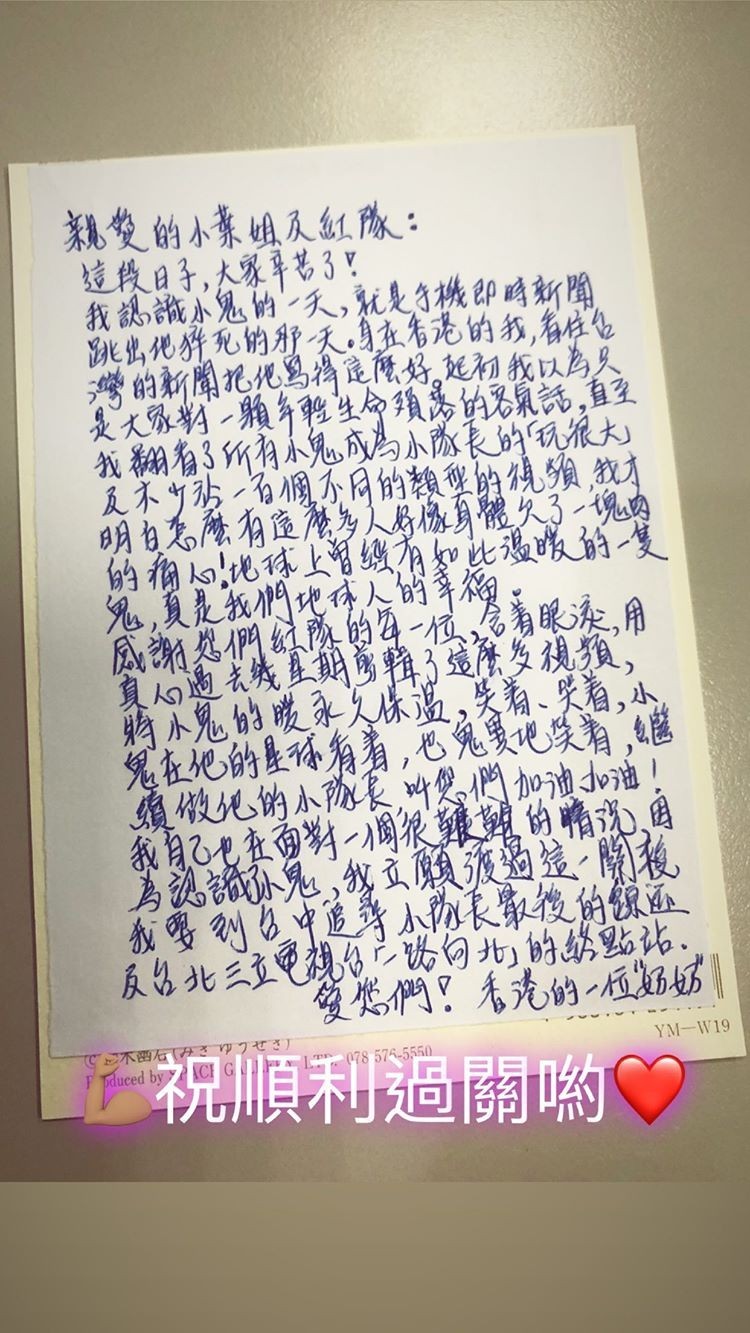 親愛的小葉姐及紅隊：
這段日子，大家辛苦了！
我認識小鬼的一天，就是手機即時新聞
跳出他猝死的那一天。身在香港的我，看住台
灣的新聞把他寫得這麼好。起初我以為只
是大家對一顆年輕生命殞落的客氣話，直至
我翻看了所有小鬼成為小隊長的「玩很大」
及不少於一百個不同的類型的視頻，我才
明白怎麼有這麼多人好像身體欠了一塊肉
的痛心！地球上曾經有如此溫暖的一隻
鬼，真是我們地球人的幸福。
感謝您們紅隊的每一位，含着眼淚，用
真心過去幾星期剪輯了這麼多視頻，
將小鬼的暖永久保溫，笑着、哭着，小
鬼在他的星球看着，也鬼異地笑着，繼
續做他的小隊長，叫您們加油加油！
我自己也在面對一個很艱難的情況，因
為認識了小鬼，我立願渡過這一關後
我要到台中追尋小隊長最後的蹤迹
及台北三立電視台「一路向北」的終點站。
愛您們！ 香港的一位"奶奶"
YM—W19
(みき ゆうせき)
Produced by SPACE GALLERY, LTD. 078-576-5550
💪🏼祝順利過關喲❤️